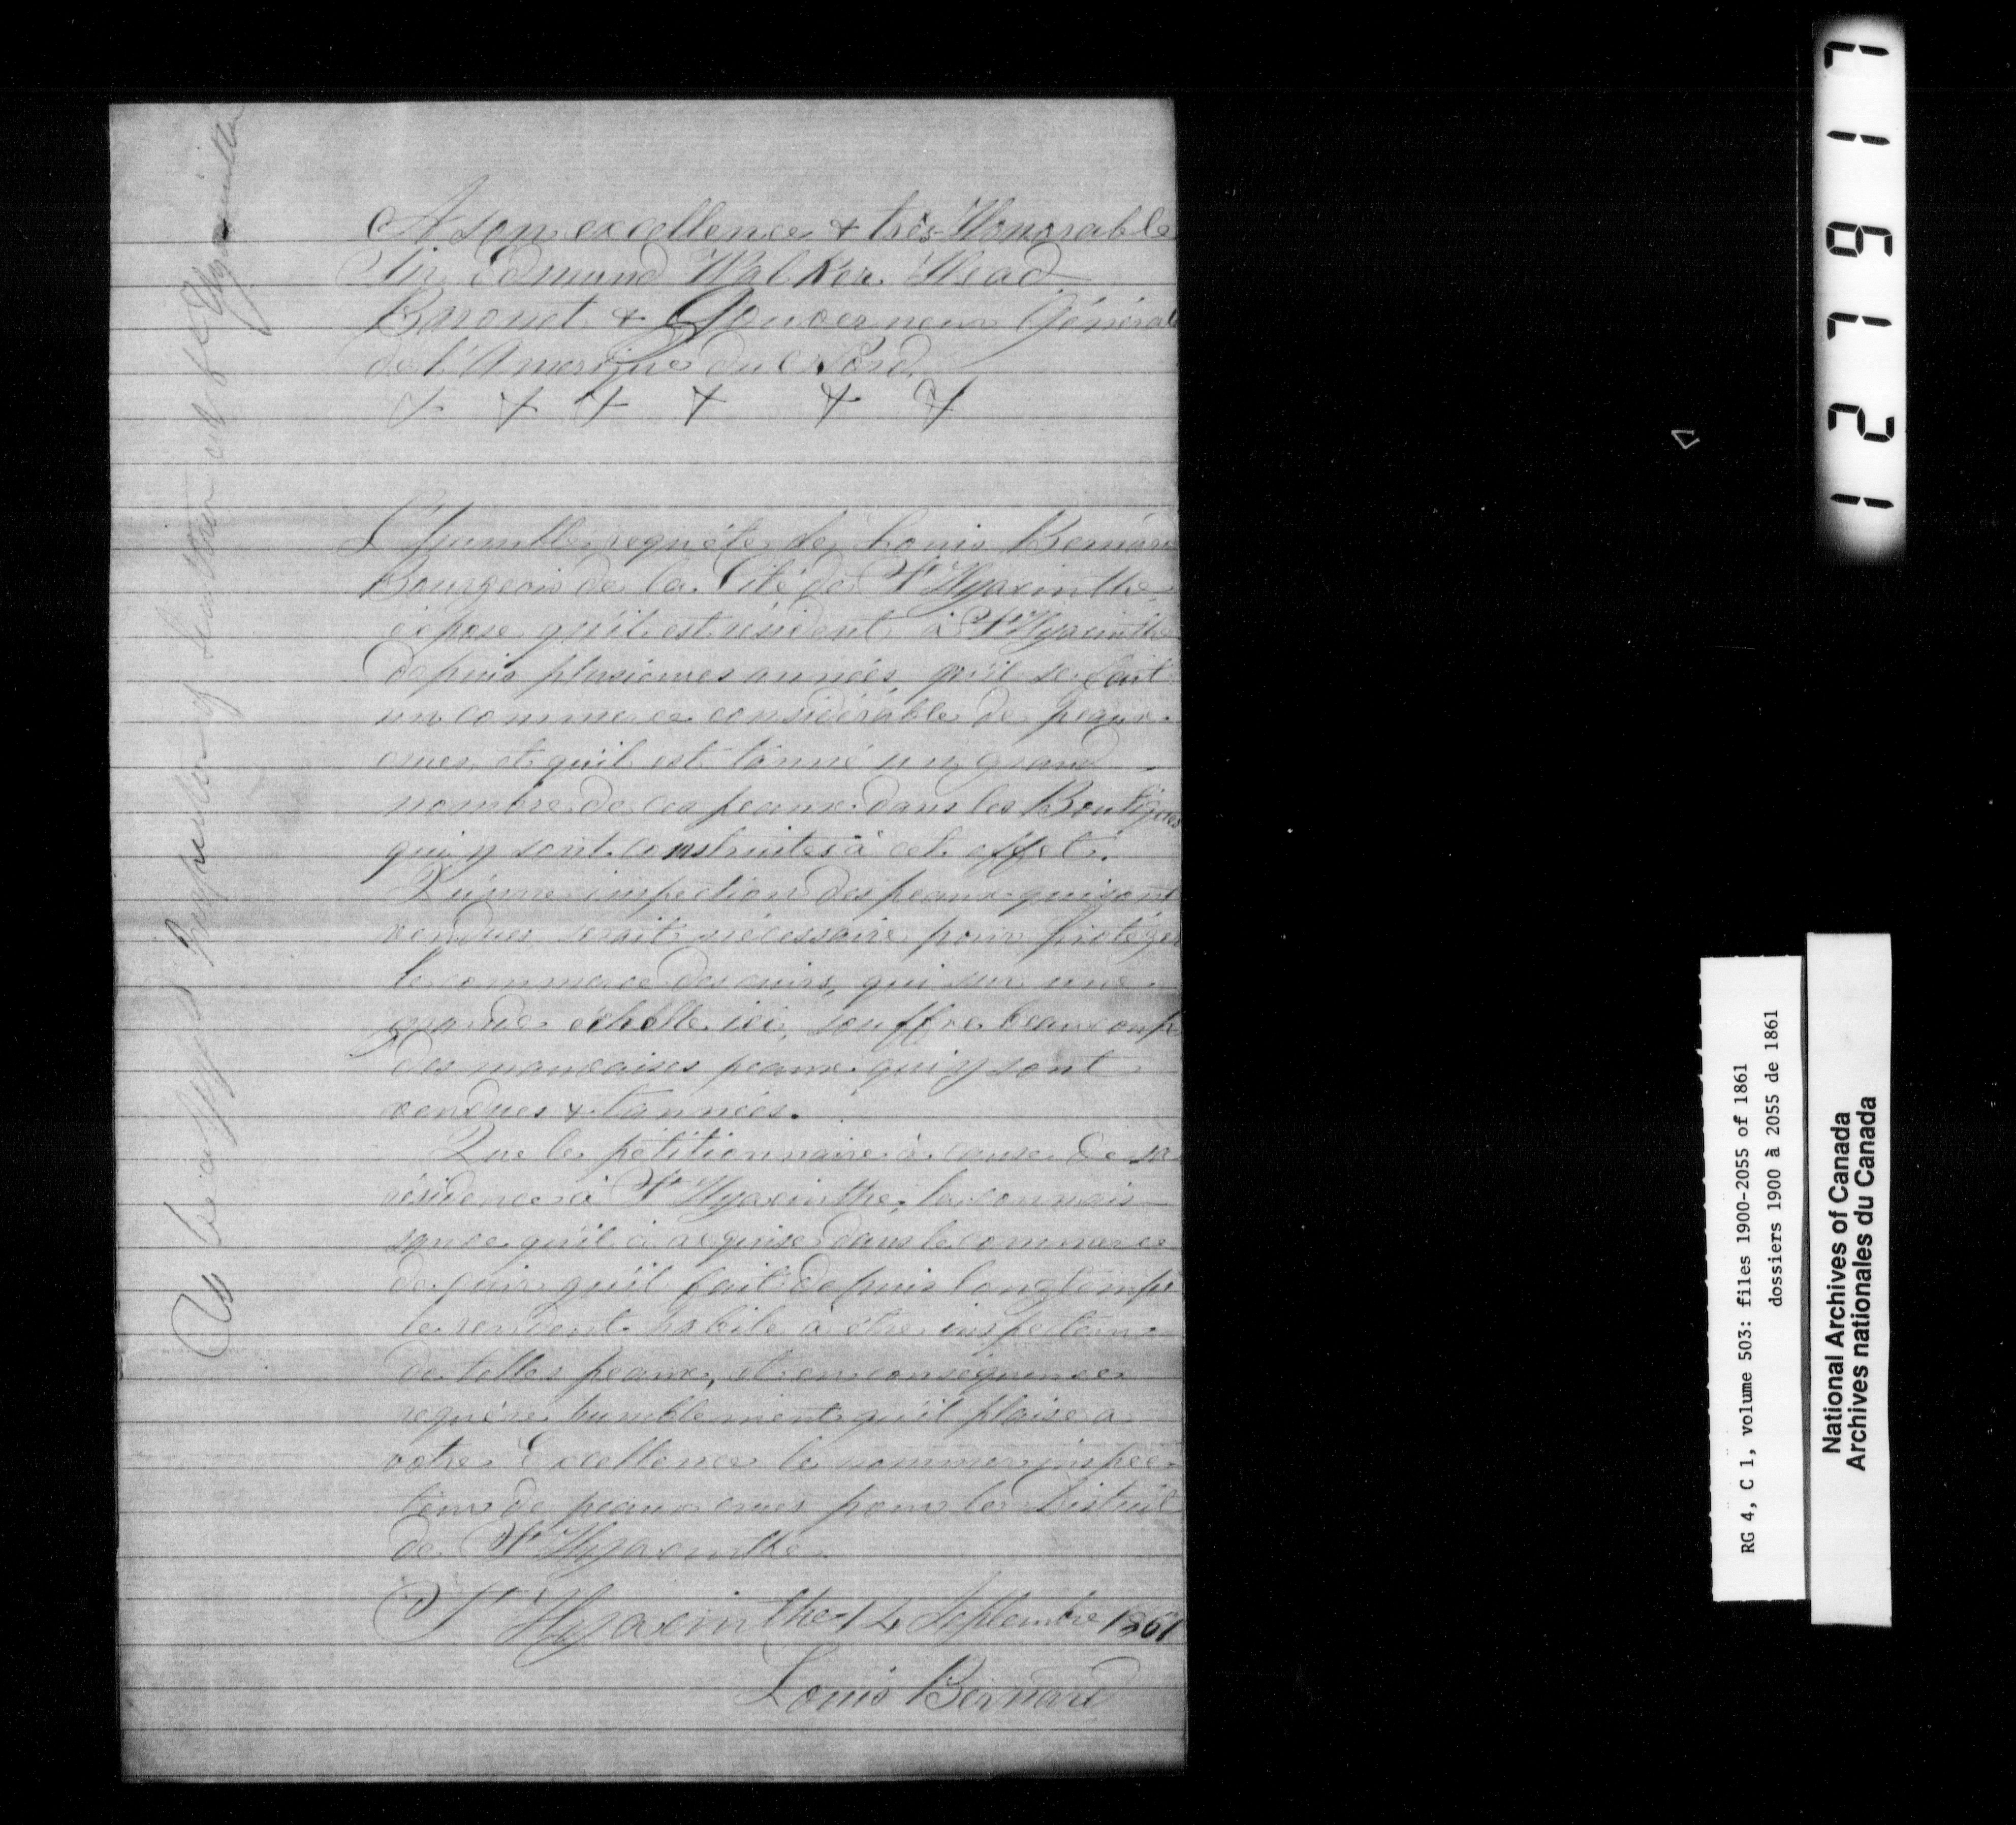 A son excellence & très-Honorable
Sir Edmund Walker Head
Baronet & Gouverneur Général
de l'Amerique du Nord
& & & & & &
L'humble requête de Louis Bernard
Bourgeois de la Cité de St Hyacinthe
expose qu'il est résident à St Hyacinthe
depuis plusieures années qu'il se fait
un commerce considérable de peaux
crues, et qu'il est tanné un grand
nombre de ces peaux dans les Boutiques
qui y sont construites à cet effet.
Qu'une inspection des peaux qui sont
vendues serait nécessaire pour protéger
le commerce des cuirs, qui sur une
grande échelle ici, souffre beaucoup
des mauvaises peaux qui y sont
vendues & tannées.
Que le pétitionnaire à cause de sa
résidence à St Hyacinthe, la connais
sance qu'il a acquise dans le commerce
de cuir qu'il fait depuis longtemps
le rendent habile à être inspecteur
de telles peaux, et en conséquence
requére humblement qu'il plaise a
votre Excellence le nommer inspec-
teur de peaux crues pour le District
de St Hyacinthe.
St Hyacinthe 12 Septembre 1861
Louis Bernard
To be appd Inspector of Leather at St Hyacinthe
127 1 6 1 7
RG 4, C 1, volume 503: files 1900-2055 of 1861
dossiers 1900 à 2055 de 1861
National Archives of Canada
Archives nationales du Canada